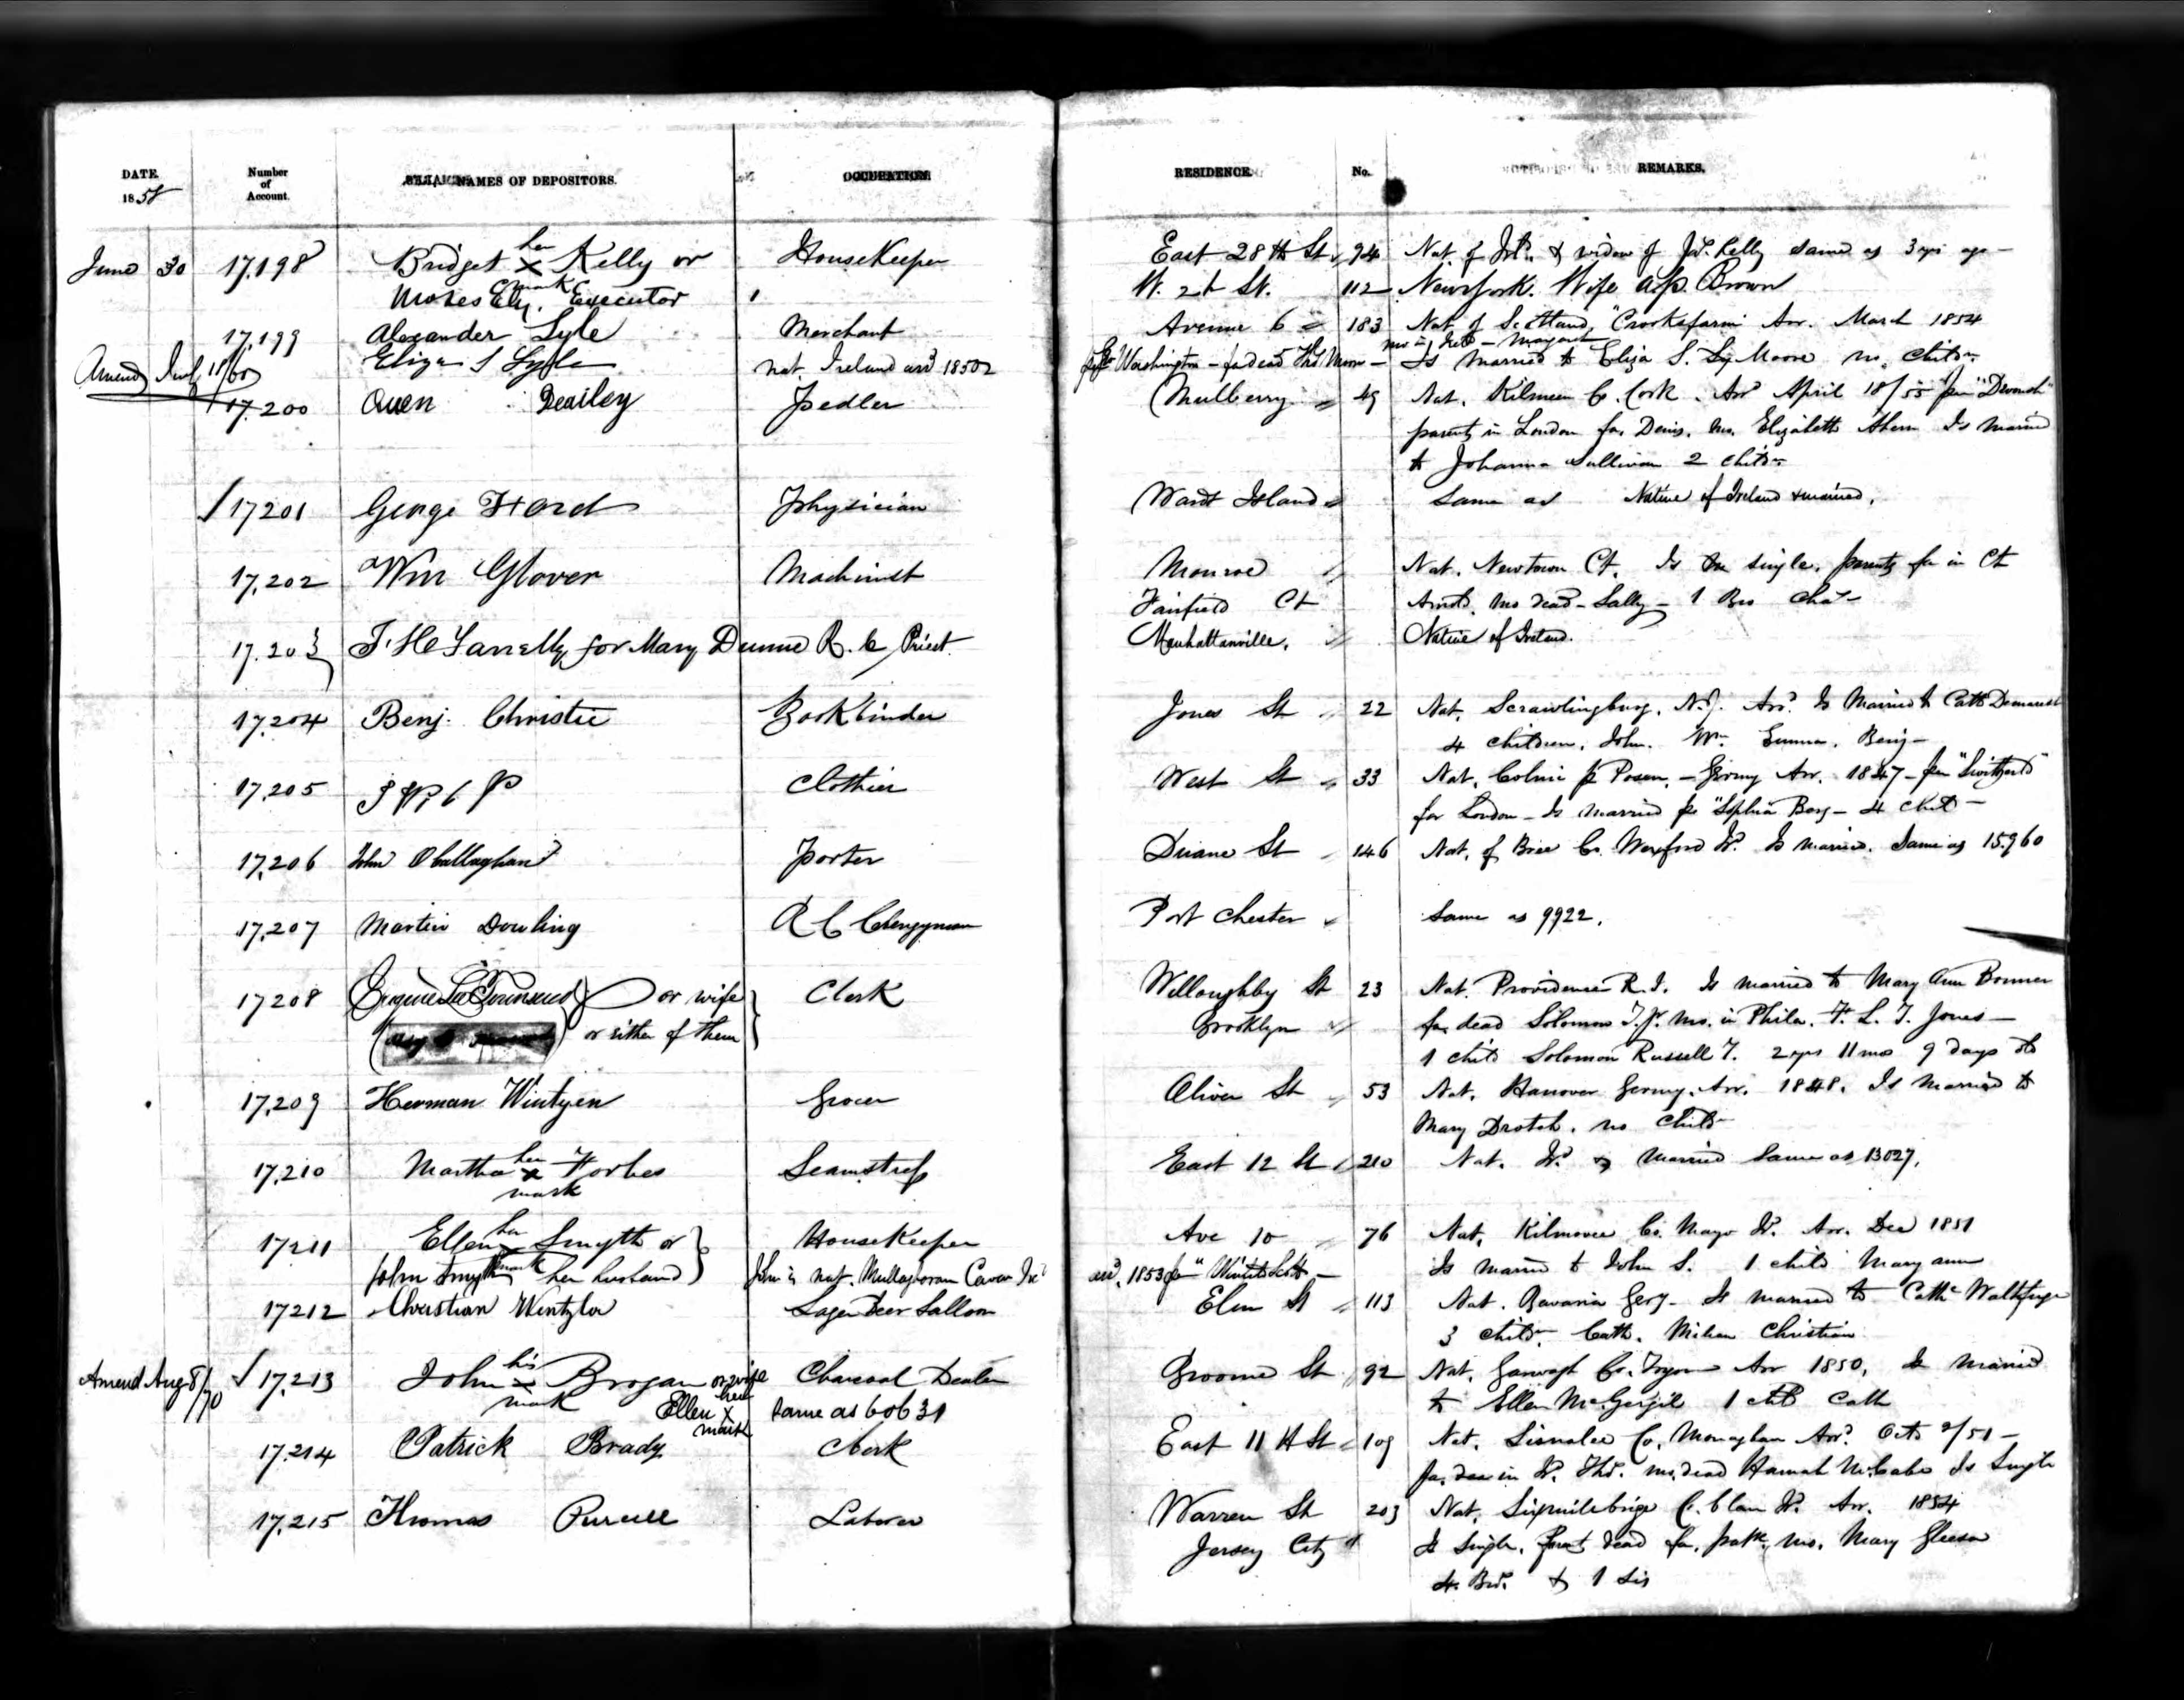 DATE. Number of Account. NAMES OF DEPOSITORS. OCCUPATION. RESIDENCE. No. REMARKS.
1858
June 30 17,198 Bridget her x mark Kelly or HouseKeeper East 28th St 94 Nat. of Ird. & widow of Jas. Kelly same as 3 yrs ago —
Moses Ely, Executor W. 2t St. 112 New York. Wife Brown
17,199 Alexander Lyle Merchant Avenue 6 183 Nat. of Scotland, Arr. March 1854
mo in Ird — Margaret
Amend July 11/60 Eliza S Lyle nat. Ireland arrd 1850 Washington — fa dead Ths Moore — Is married to Eliza S. Moore no childn
17,200 Owen Deailey Pedler Mulberry 49 Nat. Kilmeen Co. Cork. Arr April 18/55 per
parents in London fa. Denis. mo. Elizabeth Ahern Is married
to Johanna Sullivan 2 childn
17201 George Ford Physician Wards Island Same as Native of Ireland & married.
17,202 Wm Glover Machinist Monroe Nat. Newtown Ct. Is single. parents fa in Ct
Fairfield Ct Arnold. mo dead — Sally — 1 Bro Chas —
17.203 T. H Farrelly for Mary Dunne R. C Priest. Manhattanville. Native of Ireland.
17,204 Benj. Christie Bookbinder Jones St 22 Nat. Scrawlingburg. N.J. Arr. Is Married to Cath Demarest
4 children. John. Wm. Emma. Benj —
17,205 Clothier West St 33 Nat. Posen. — Germy Arr. 1847 — per
for London — Is married Sophia — 4 chil —
17,206 John O'Callaghan Porter Duane St 146 Nat. of Bree Co. Wexford Ir. Is married. Same as 15,960
17,207 Martin Dowling R C Clergyman Port Chester Same as 9922.
17208 or wife Clerk Willoughby St 23 Nat. Providence R.I. Is married to Mary Ann Bonner
or either of them Brooklyn fa. dead Solomon T. Jr. mo. in Phila. F. L. T. Jones —
1 child Solomon Russell T. 2 yrs 11 mo 9 days old
17,209 Herman Wintyen Grocer Oliver St 53 Nat. Hanover Germy. Arr. 1848. Is married to
Mary Drotsh. no child
17,210 Martha her x mark Forbes Seamstress East 12 St 210 Nat. Ir. & Married Same as 13027.
17211 Ellen her x mark Smyth or HouseKeeper Ave 10 76 Nat. Kilmovee Co. Mayo Ir. Arr. Dec 1851
John Smyth her husband John is nat. Mullaghoran Cavan Ird arrd. 1853 per Is married to John S. 1 child Mary ann
17212 Christian Wentzler Lager Beer Saloon Elm St 113 Nat. Bavaria Gery. Is married to Cathe
3 childn Cath. Christian
Amend Aug 8/70 17,213 John his x mark Brogan or wife Charcoal Dealer Broome St 92 Nat. Co. Tyrone Arr 1850. Is married
Ellen her x mark Same as 60631 to Ellen 1 chld Cath
17.214 Patrick Brady Clerk East 11th St 109 Nat. Co. Monaghan Arr. Oct /51 —
fa. in Ir. Ths. mo. dead Hannah McCabe Is Single
17,215 Thomas Purcell Laborer Warren St 203 Nat. Sixmilebrige C. Clare Ir. Arr. 1854
Jersey City Is single. Parents dead fa. Patk. mo. Mary Gleeson
4. Bro. & 1 Sis